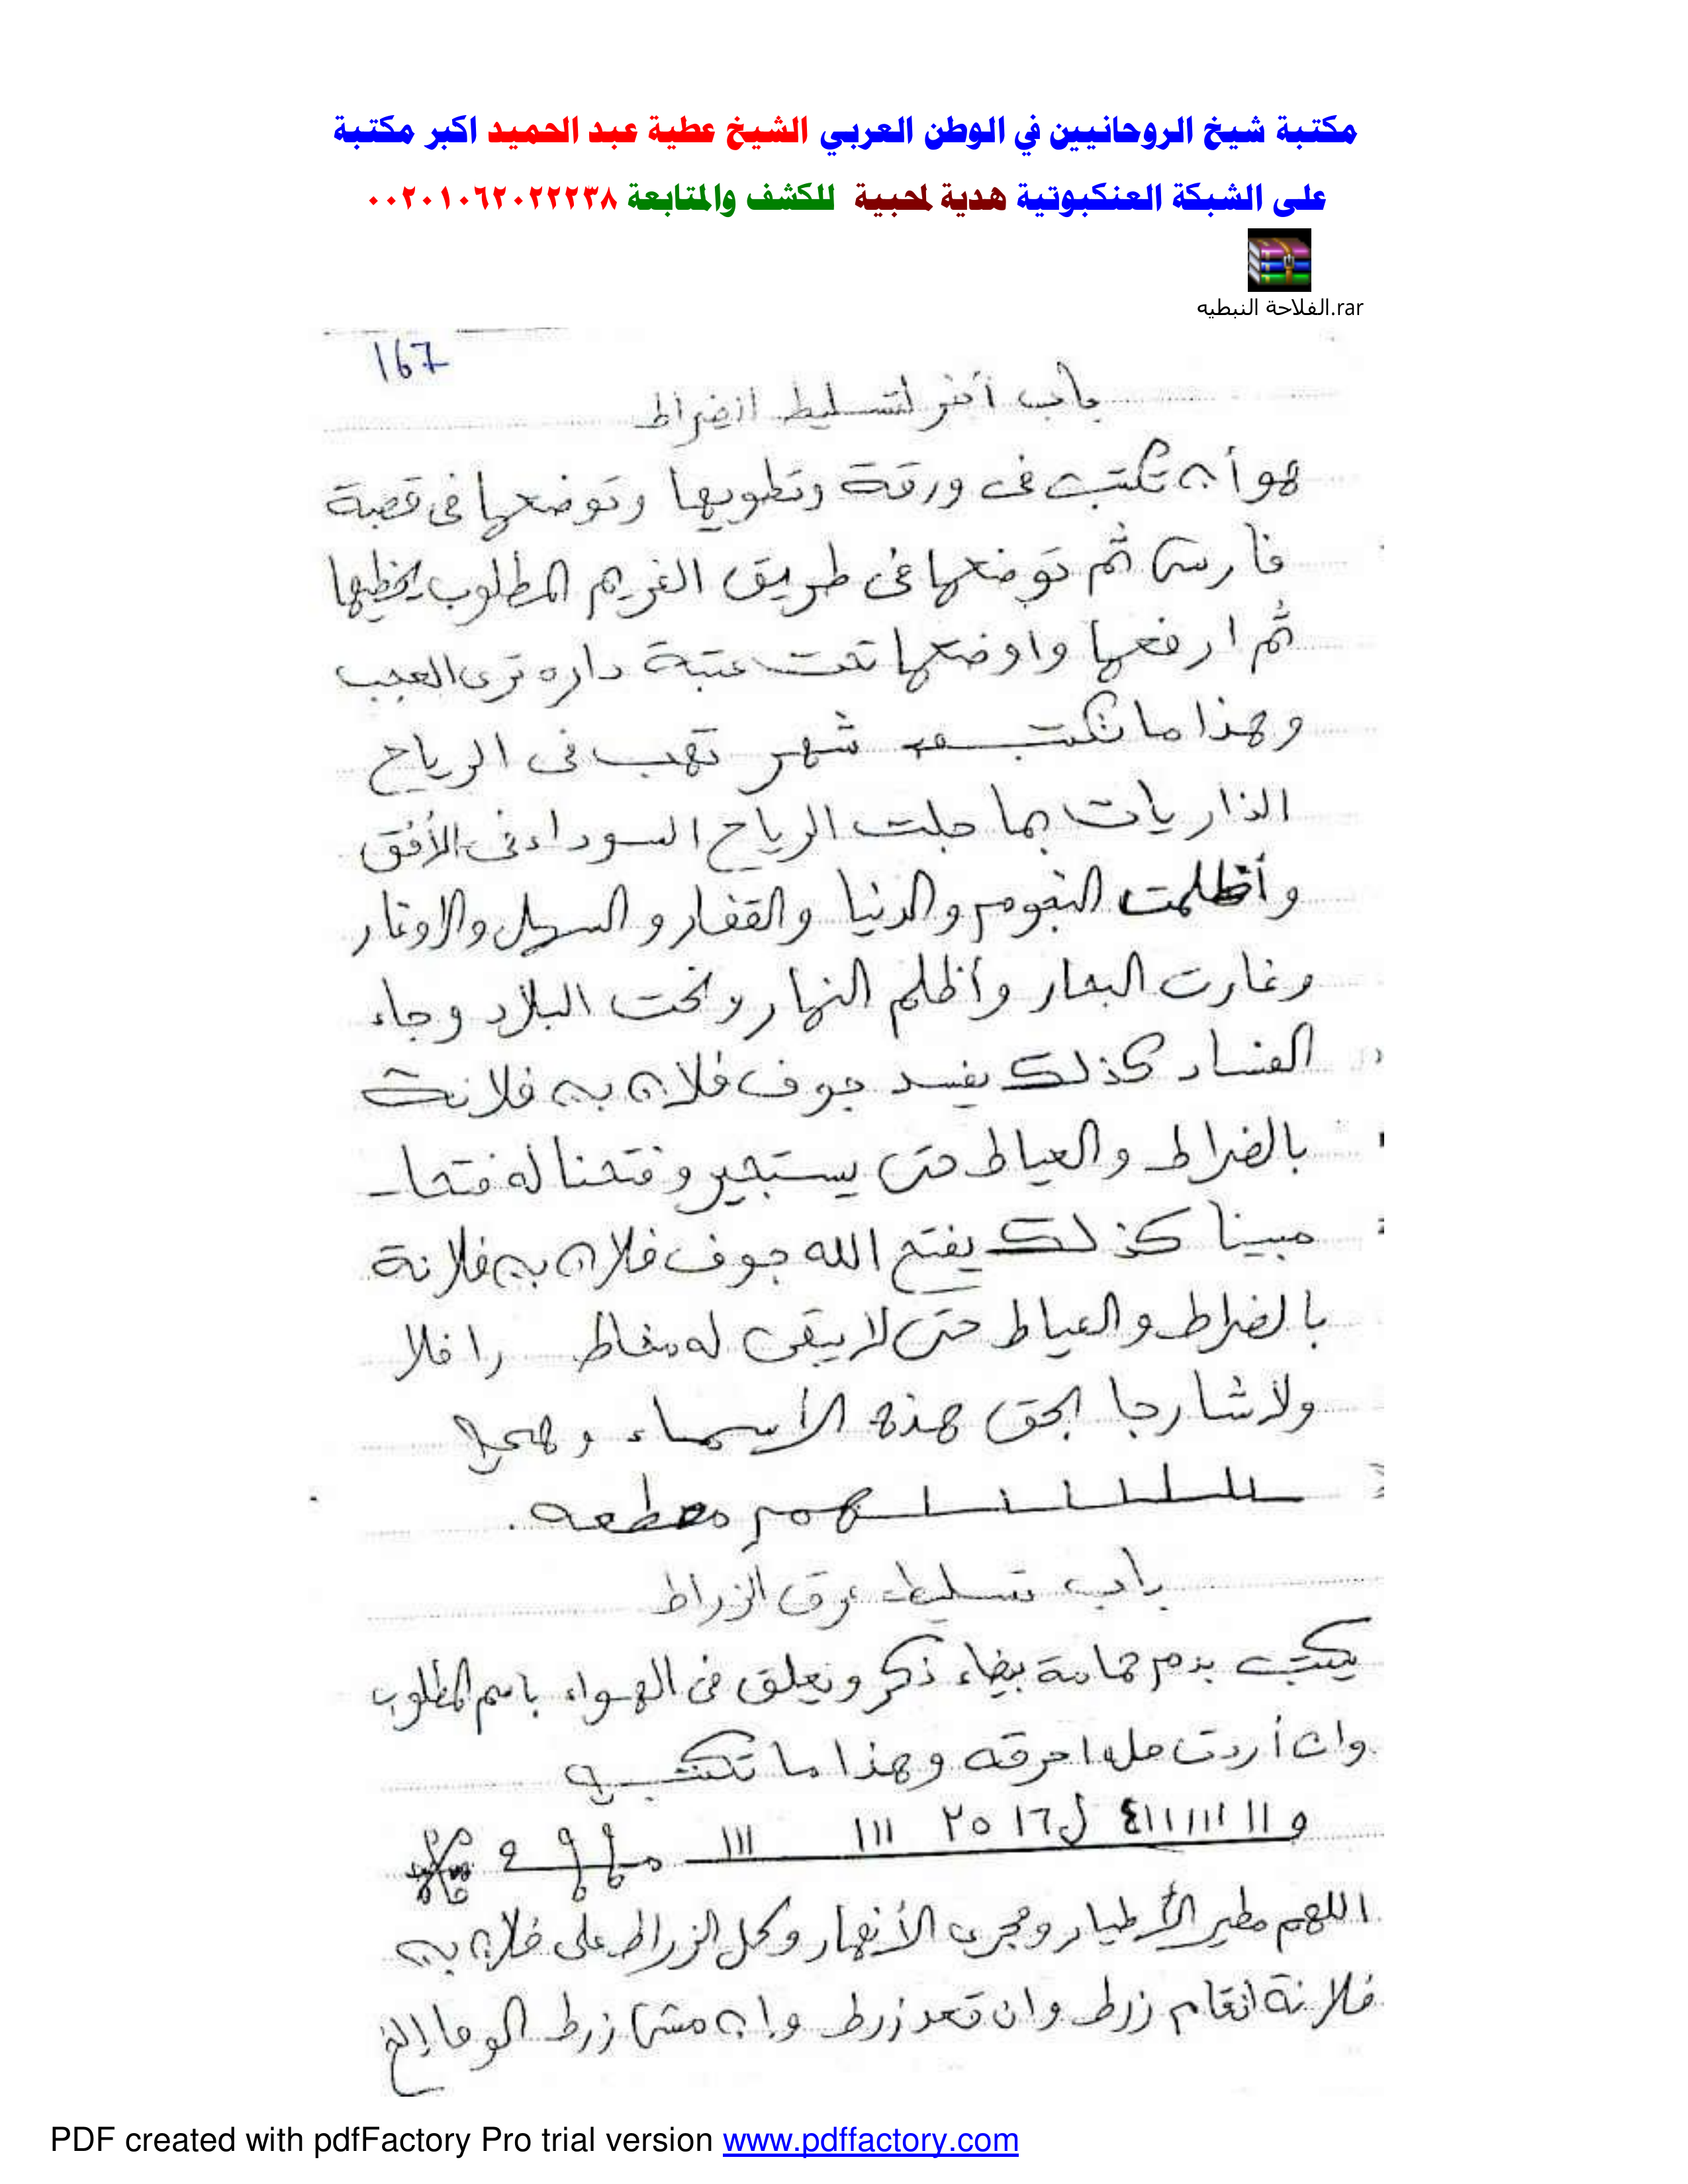 مكتبة شيخ الروحانيين في الوطن العربي الشيخ عطية عبد الحميد اكبر مكتبة
على الشبكة العنكبوتية هدية لمحبية للكشف والمتابعة ٠٠٢٠١٠٦٢٠٢٢٢٣٨
الفلاحة النبطيه.rar
167
باب آخر لتسليط الضراط
هو أن تكتب فى ورقة وتطويها وتوضعها فى قصبة
فارسى ثم توضعها فى طريق الغريم المطلوب يخطيها
ثم ارفعها واوضعها تحت عتبة داره ترى العجب
وهذا ما تكتب شهر تهب فى الرياح
الذاريات بما حلت الرياح السوداء فى الأفق
وأظلمت النجوم والدنيا والقفار والسهل والاوعار
وغارت البحار وأظلم النهار و البلاد وجاء
الفساد كذلك يفسد جوف فلان بن فلانة
بالضراط والعياط حتى يستجير وفتحنا له فتحا
مبينا كذلك يفتح الله جوف فلان بن فلانة
بالضراط والعياط حتى لا يبقى له
ولا بحق هذه الأسماء
باب تسليط عرق الزراط
يكتب بدم حمامة بيضاء ذكر ويعلق فى الهواء باسم المطلوب
وان أردت حله احرقه وهذا ما تكتب
و ١١ ١١١ ٤١١ ل ١٦ ٢٥ ١١١ ١١١
اللهم مطير الأطيار ومجرى الأنهار وكل الزراط على فلان بن
فلانة انقام زرط وان قعد زرط وإن مشى زرط الوحا إلخ
PDF created with pdfFactory Pro trial version www.pdffactory.com